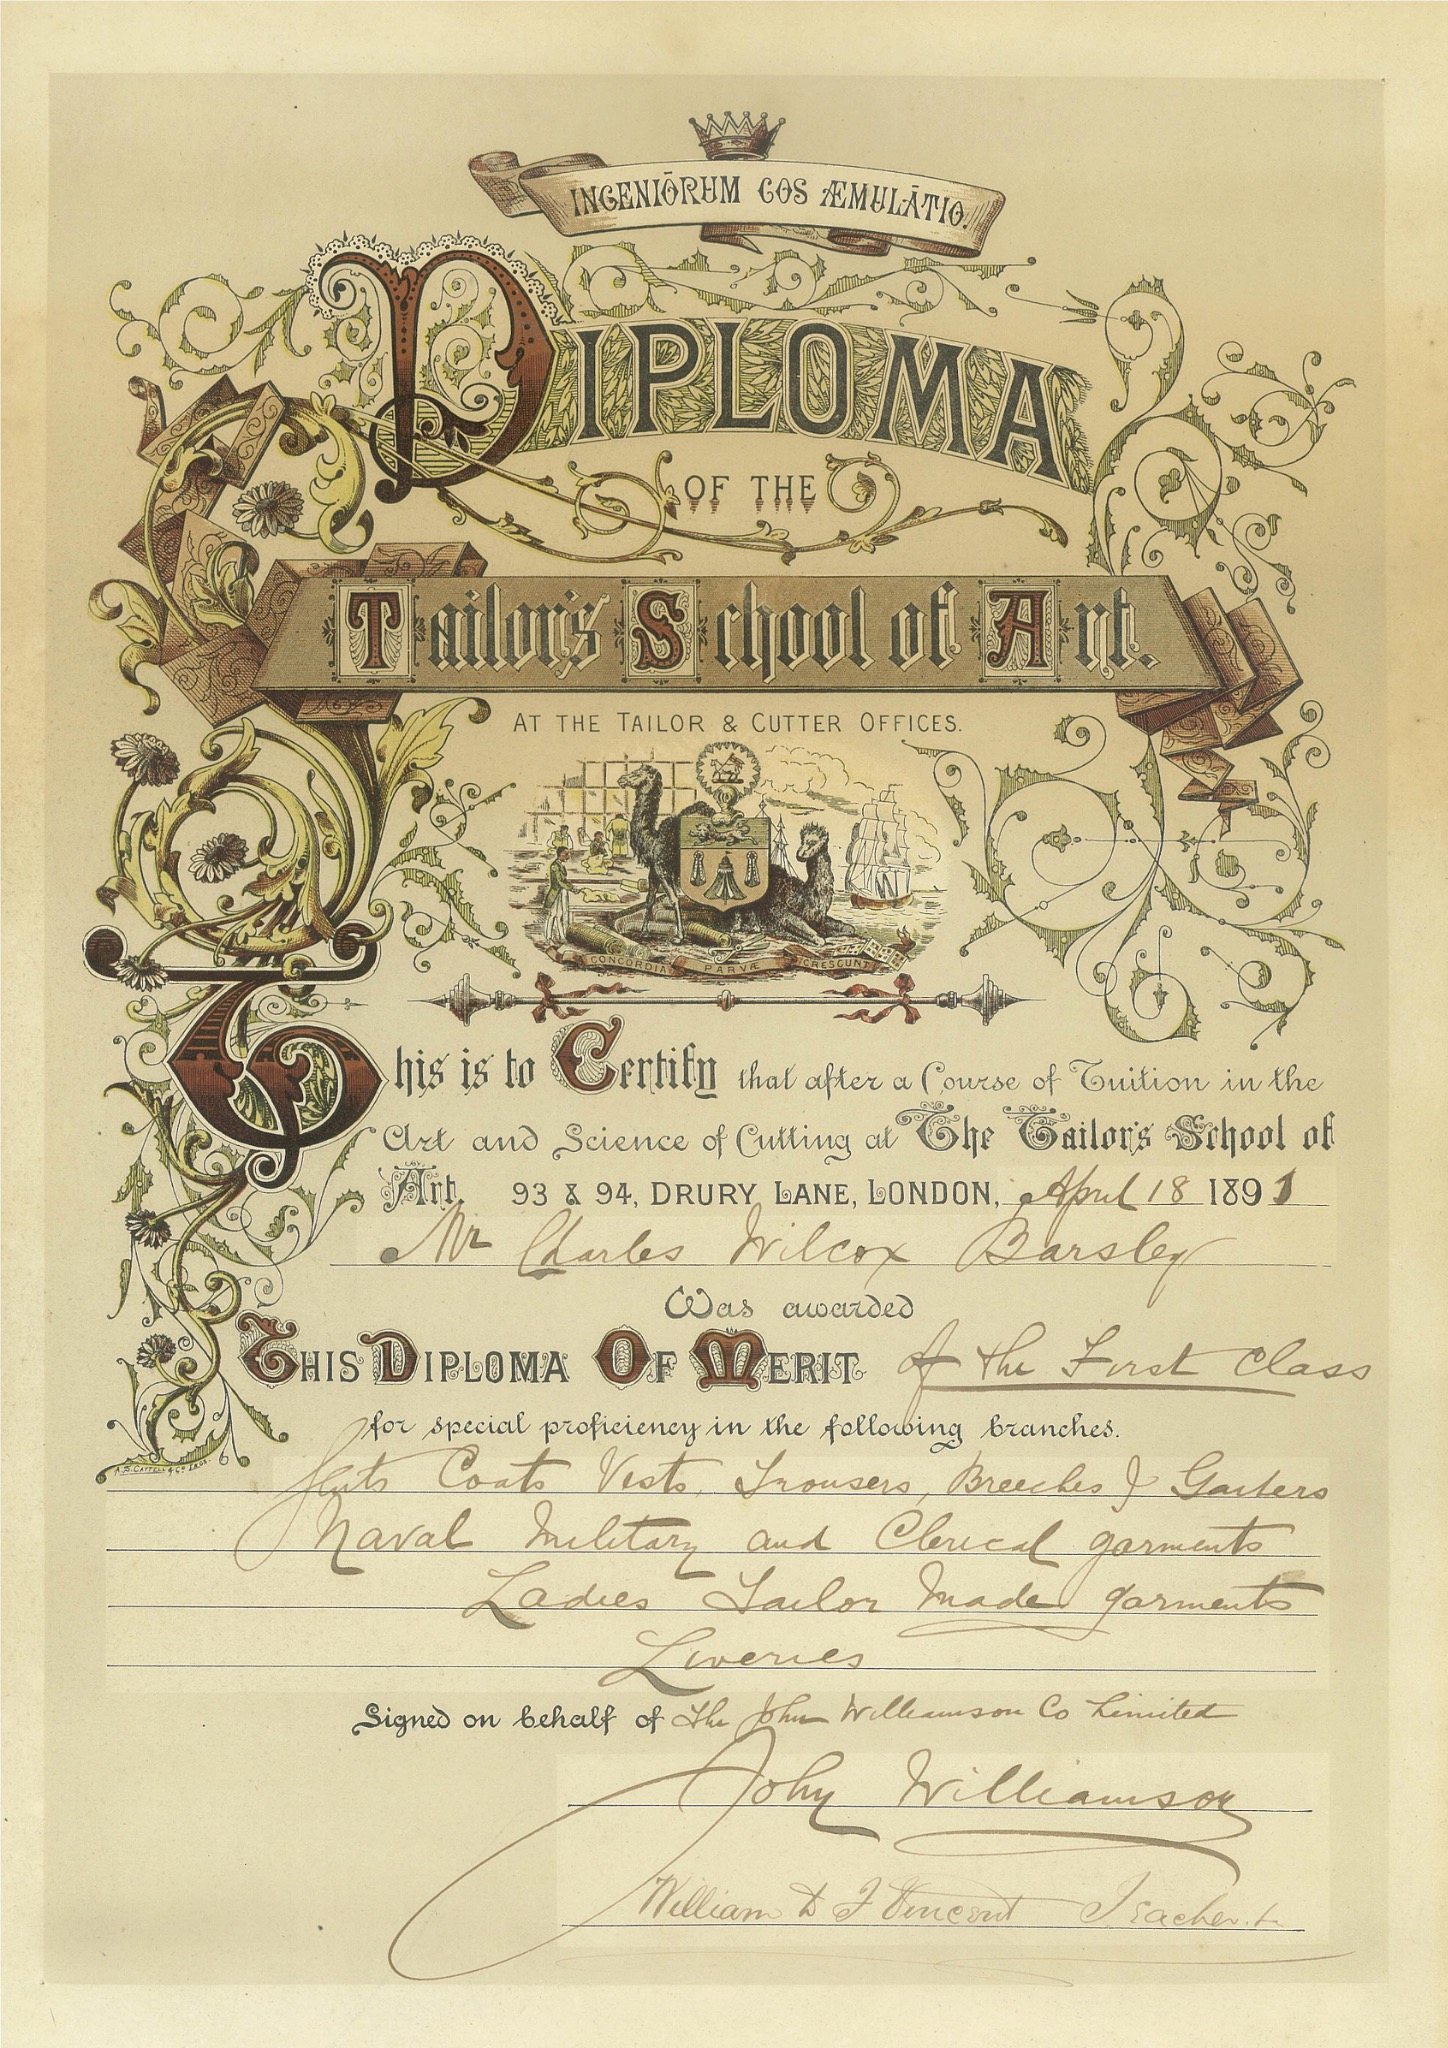 INGENIŌRUM COS ÆMULĀTIO.
DIPLOMA
OF THE
Tailor's School of Art.
AT THE TAILOR & CUTTER OFFICES.
CONCORDIA PARVÆ CRESCUNT
This is to Certify that after a Course of Tuition in the
Art and Science of Cutting at The Tailor's School of
Art. 93 & 94, DRURY LANE, LONDON, April 18 1891
Mr Charles Wilcox Barsley
Was awarded
THIS DIPLOMA OF MERIT of the First Class
for special proficiency in the following branches.
Coats Vests, Trousers, Breeches & Gaiters
Naval Military and Clerical garments
Ladies Tailor Made garments
Liveries
Signed on behalf of The John Williamson Co Limited
John Williamson
William D F Vincent Teacher
A. S. CATTELL & Co